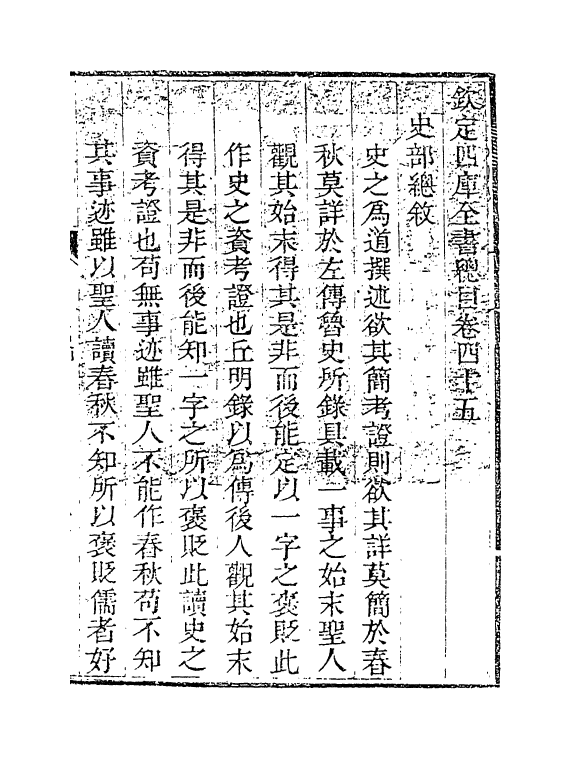 欽定四庫全書總目卷四十五
史部總敘
史之爲道撰述欲其簡考證則欲其詳莫簡於春
秋莫詳於左傳魯史所錄具載一事之始末聖人
觀其始末得其是非而後能定以一字之褒貶此
作史之資考證也丘明錄以爲傳後人觀其始末
得其是非而後能知一字之所以褒貶此讀史之
資考證也苟無事迹雖聖人不能作春秋苟不知
其事迹雖以聖人讀春秋不知所以褒貶儒者好